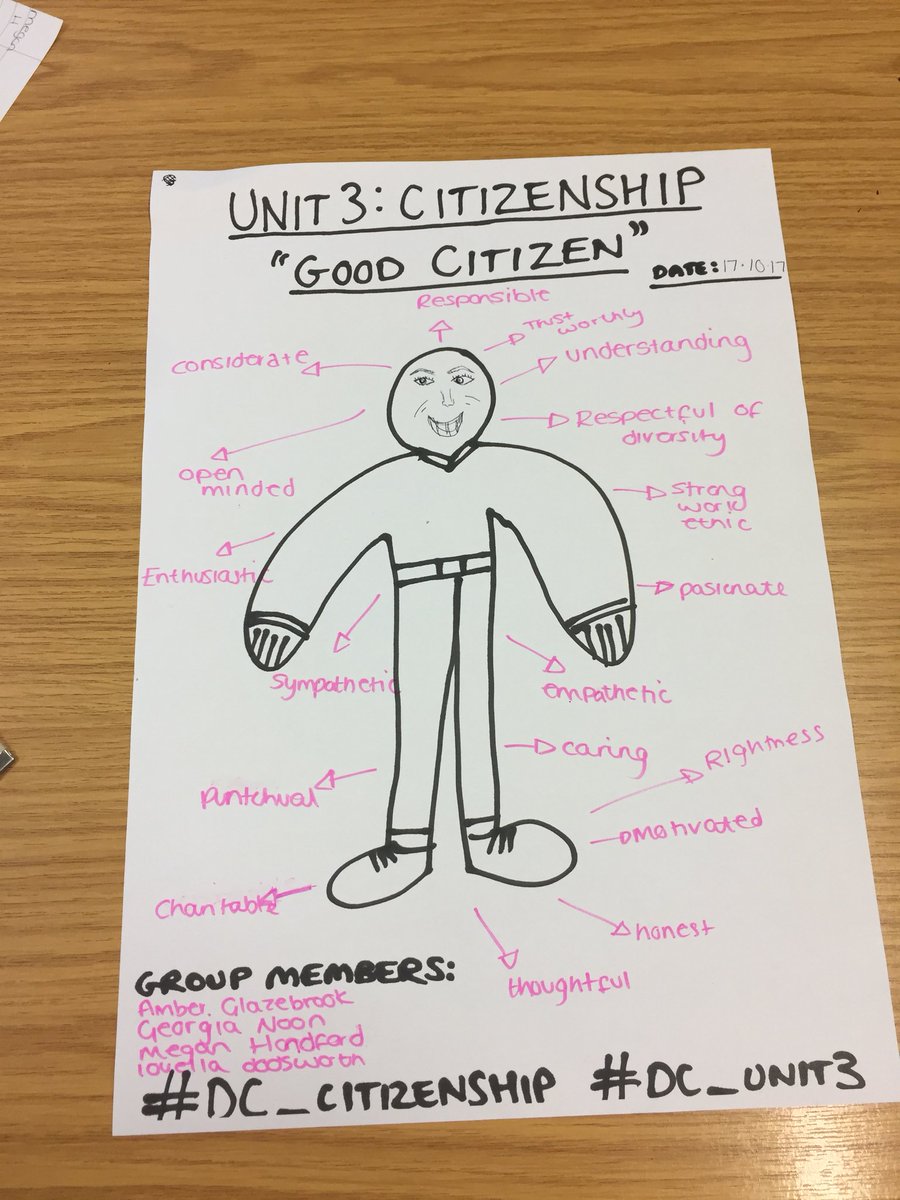 megan
H
UNIT 3: CITIZENSHIP
"GOOD CITIZEN"
DATE: 17.10.17
Responsible
Trust
worthy
understanding
considerate
Respectful of
diversity
open
minded
strong
work
ethic
Enthusiastic
pasionate
sympathetic
empathetic
caring
Rightness
puntchual
motivated
charitable
honest
thoughtful
GROUP MEMBERS:
Amber. Glazebrook
Georgia Noon
Megan Handford
louella dodsworth
#DC_CITIZENSHIP #DC_UNIT3